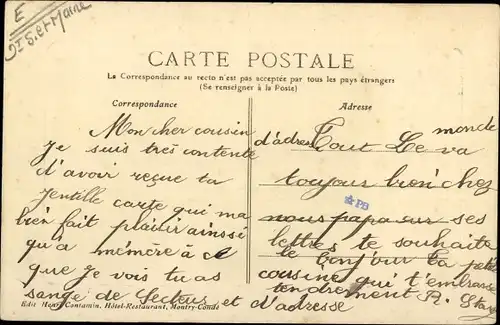 E
Dt S. et Marne
CARTE POSTALE
La Correspondance au recto n'est pas acceptée par tous les pays étrangers
(Se renseigner à la Poste)
Correspondance
Mon cher cousin
Je suis très contente
d'avoir reçue ta
jentille carte qui ma
bien fait plaisir ainssi
qu'a mémère à
que je vois tu as
sange de secteur et d'adresse
Adresse
d'adress monde
Tout Le va
toujour bien chez
☆PB
nous papa sur ses
lettres te souhaite
le bonjour ta pete
cousine qui t'embrasse
tendrement R.
Edit. Henri Contamin, Hôtel-Restaurant, Montry-Condé